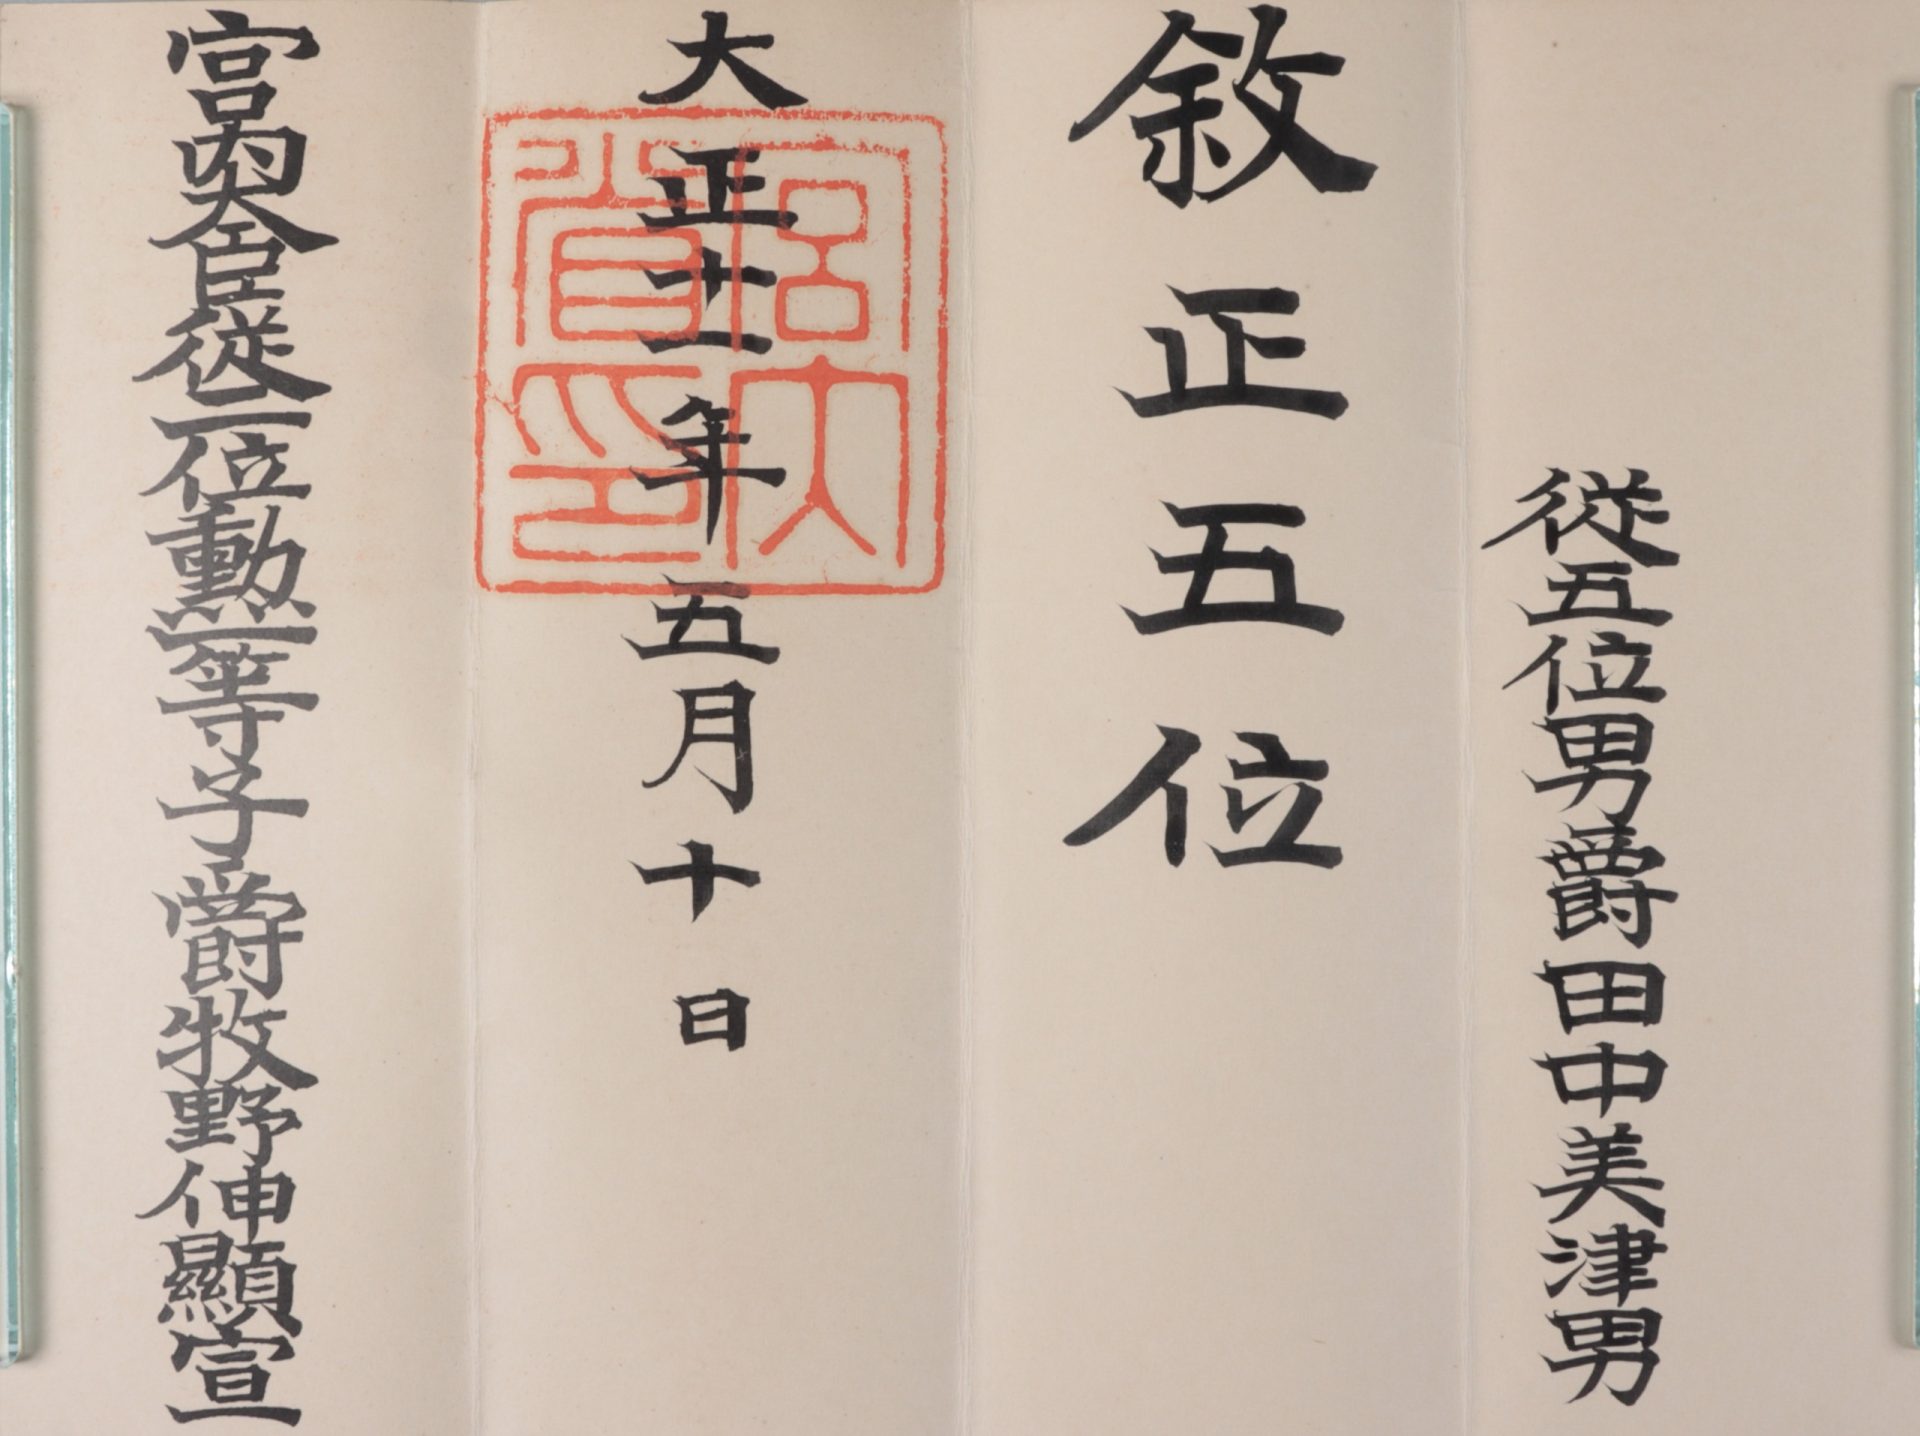 従五位男爵田中美津男
敘正五位
大正十一年五月十日
宮内大臣従二位勲一等子爵牧野伸顯宣
宮内省印